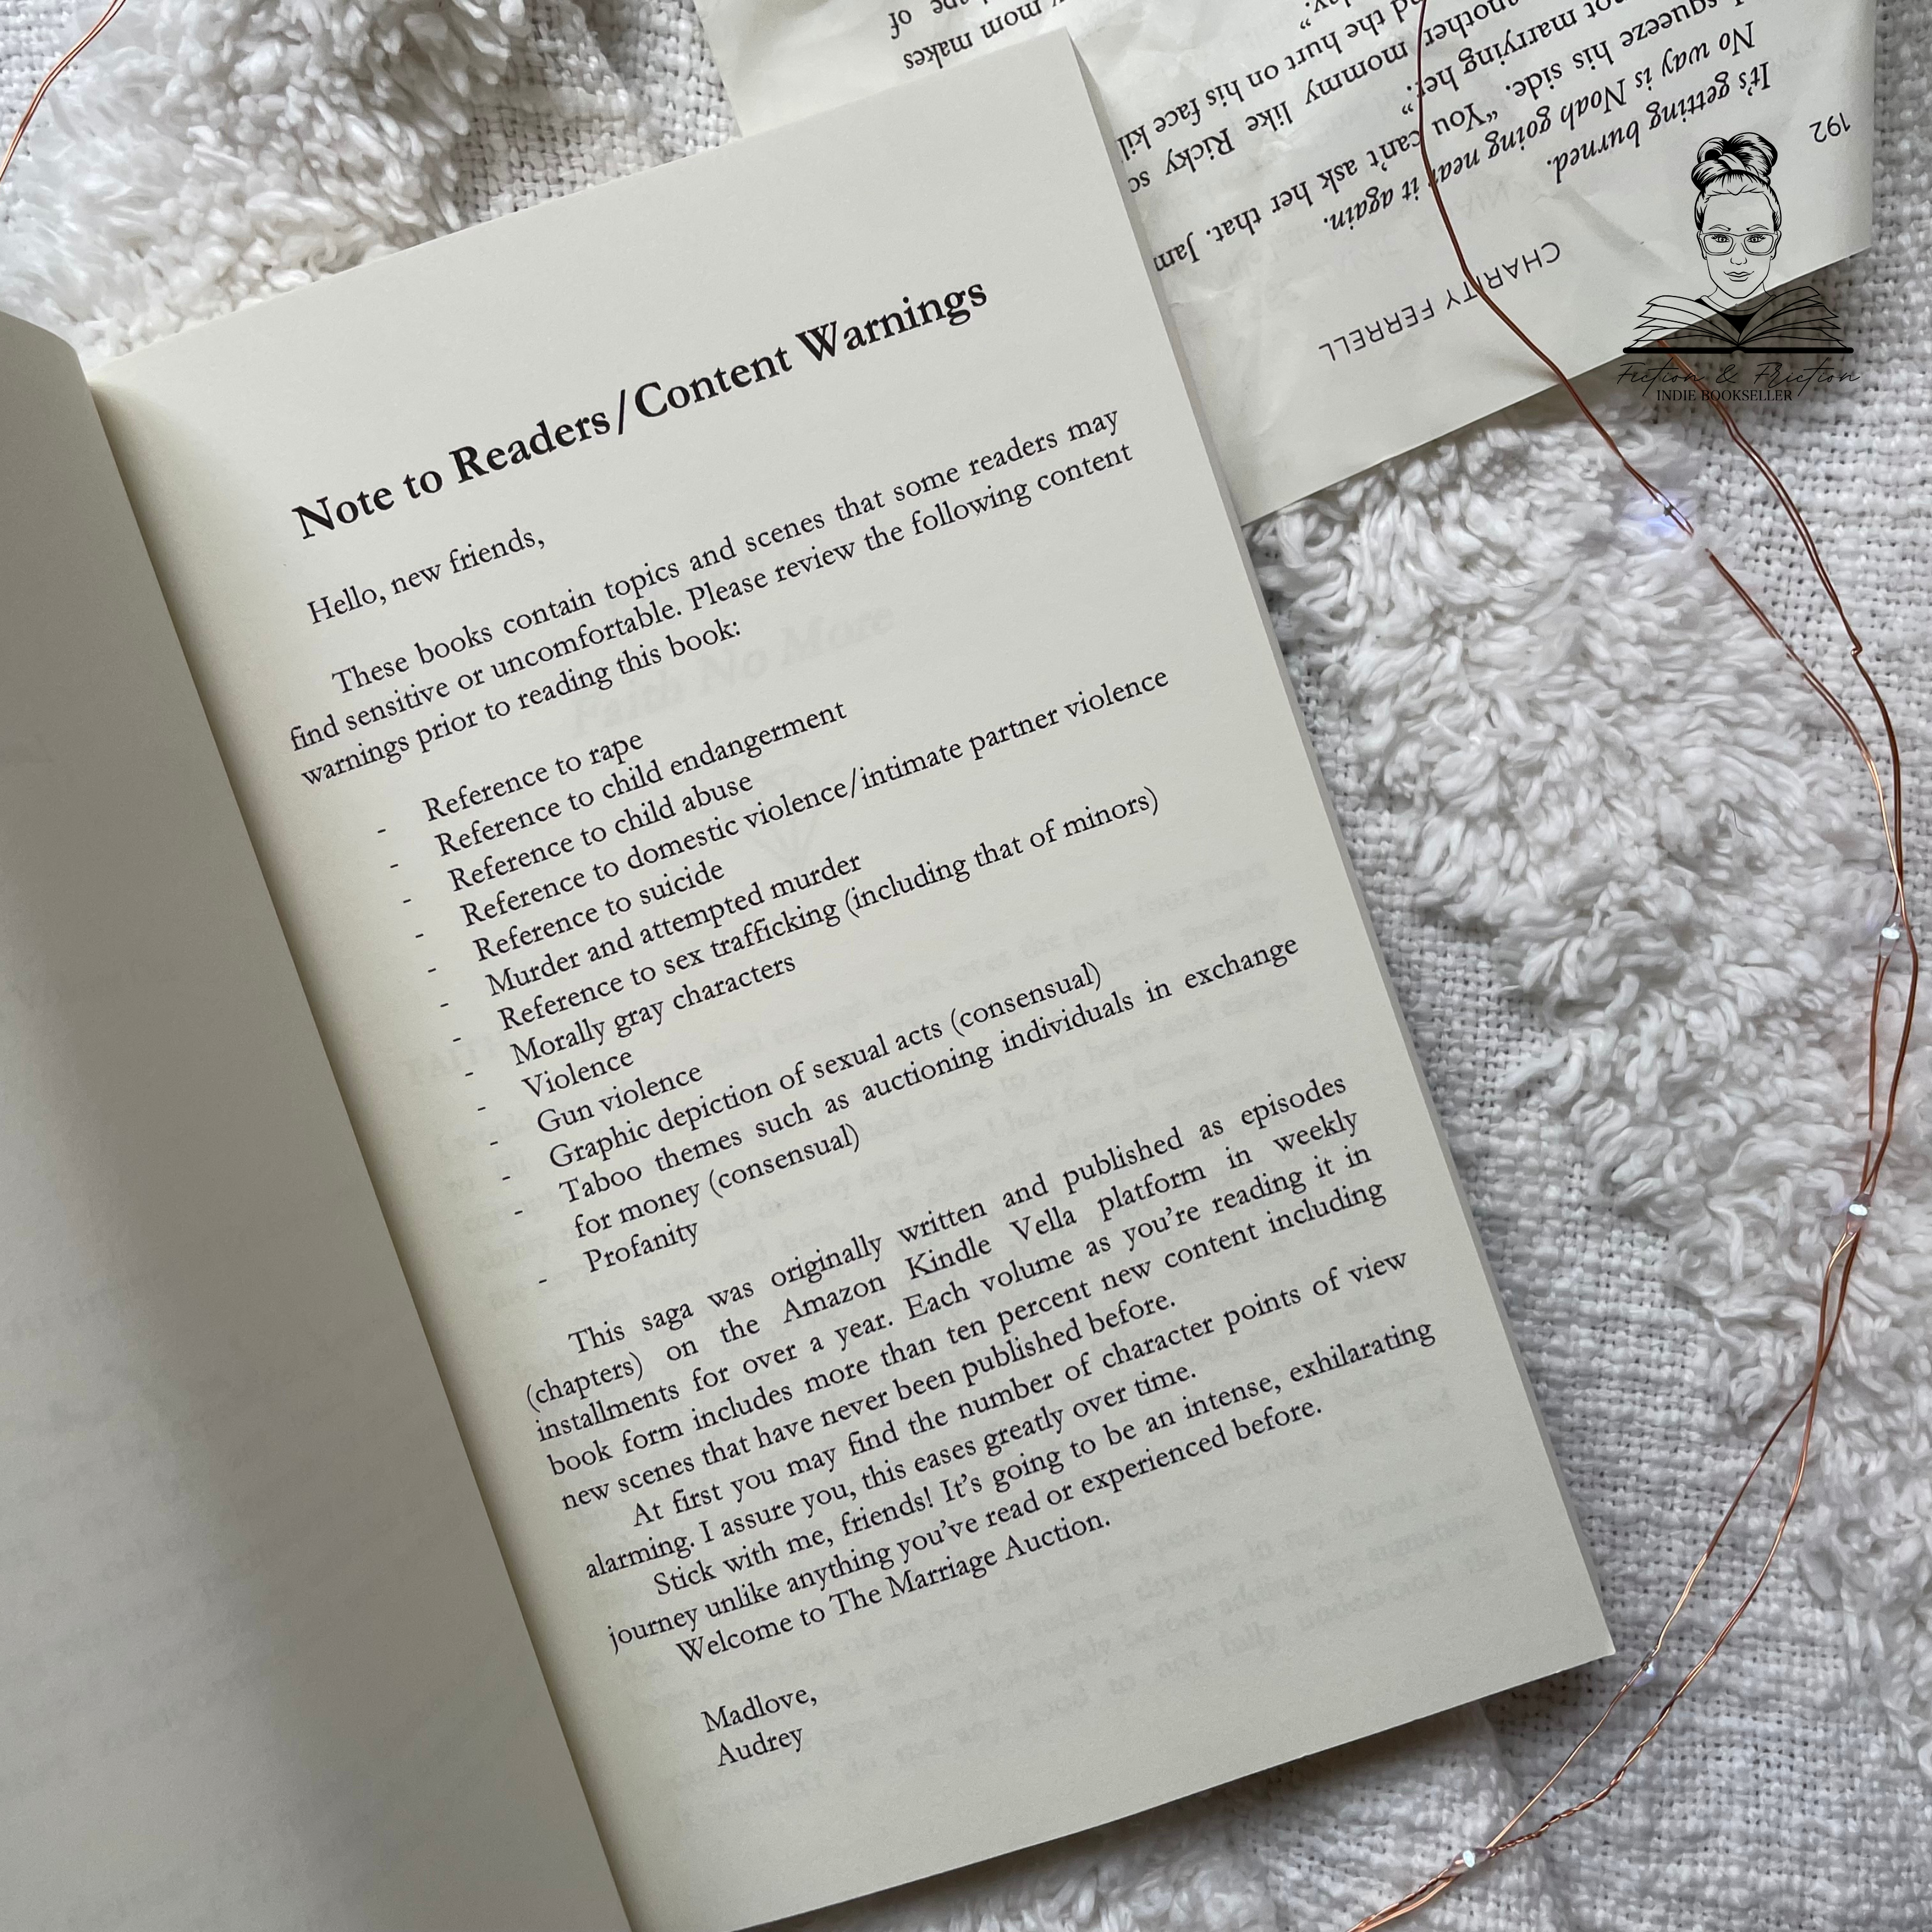 Note to Readers/Content Warnings
Hello, new friends,
These books contain topics and scenes that some readers may
find sensitive or uncomfortable. Please review the following content
warnings prior to reading this book:
- Reference to rape
- Reference to child endangerment
- Reference to child abuse
- Reference to domestic violence/intimate partner violence
- Reference to suicide
- Murder and attempted murder
- Reference to sex trafficking (including that of minors)
- Morally gray characters
- Violence
- Gun violence
- Graphic depiction of sexual acts (consensual)
- Taboo themes such as auctioning individuals in exchange
for money (consensual)
- Profanity
This saga was originally written and published as episodes
(chapters) on the Amazon Kindle Vella platform in weekly
installments for over a year. Each volume as you're reading it in
book form includes more than ten percent new content including
new scenes that have never been published before.
At first you may find the number of character points of view
alarming. I assure you, this eases greatly over time.
Stick with me, friends! It's going to be an intense, exhilarating
journey unlike anything you've read or experienced before.
Welcome to The Marriage Auction.
Madlove,
Audrey
192
CHARITY FERRELL
It's getting burned.
No way is Noah going near it again.
squeeze his side. "You can't ask her that. Jam
not marrying her."
another mommy like Ricky so
the hurt on his face kil
mom makes
of
Fiction & Friction
INDIE BOOKSELLER